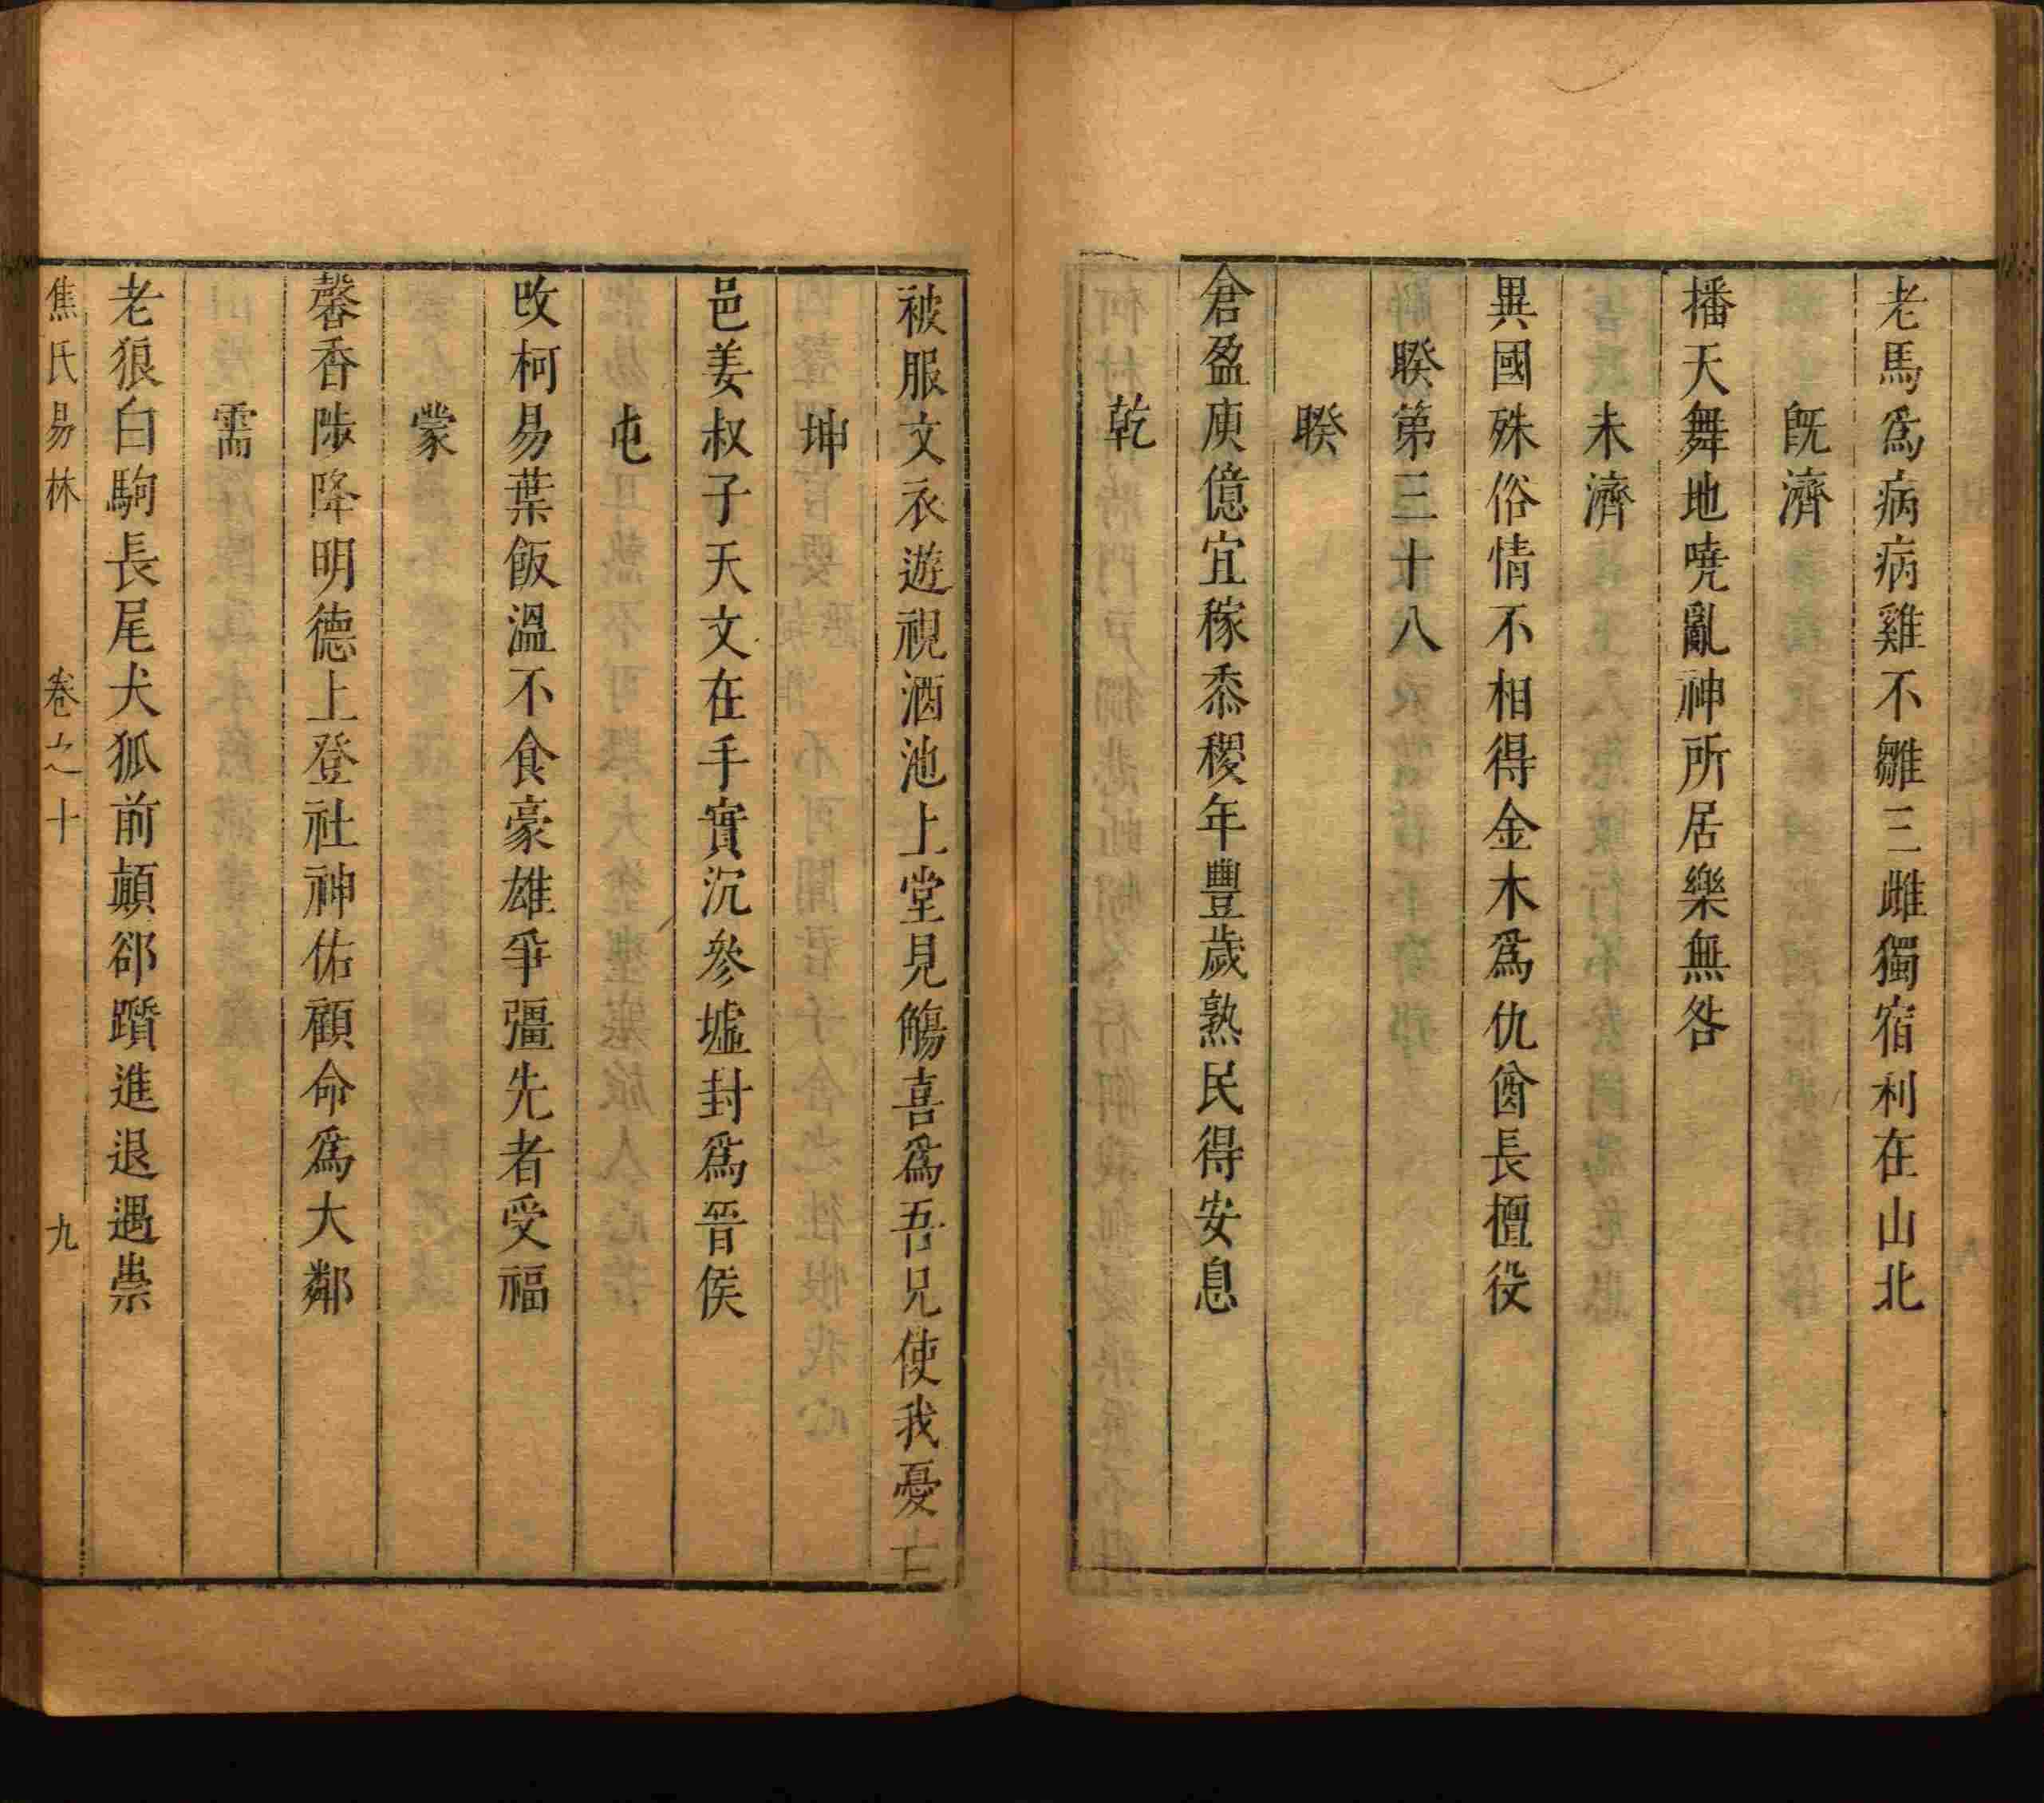 老馬爲病病雞不雛三雌獨宿利在山北
旣濟
播天舞地嘵亂神所居樂無咎
未濟
異國殊俗情不相得金木爲仇酋長擅役
睽第三十八
睽
倉盈庾億宜稼黍稷年豐歲熟民得安息
乾
被服文衣遊視酒池上堂見觴喜爲吾兄使我憂亡
坤
邑姜叔子天文在手實沉參墟封爲晉侯
屯
改柯易葉飯溫不食豪雄爭彊先者受福
蒙
馨香陟降明德上登社神佑顧命爲大鄰
需
老狼白駒長尾犬狐前顛卻躓進退遇祟
焦氏易林 卷之十 九